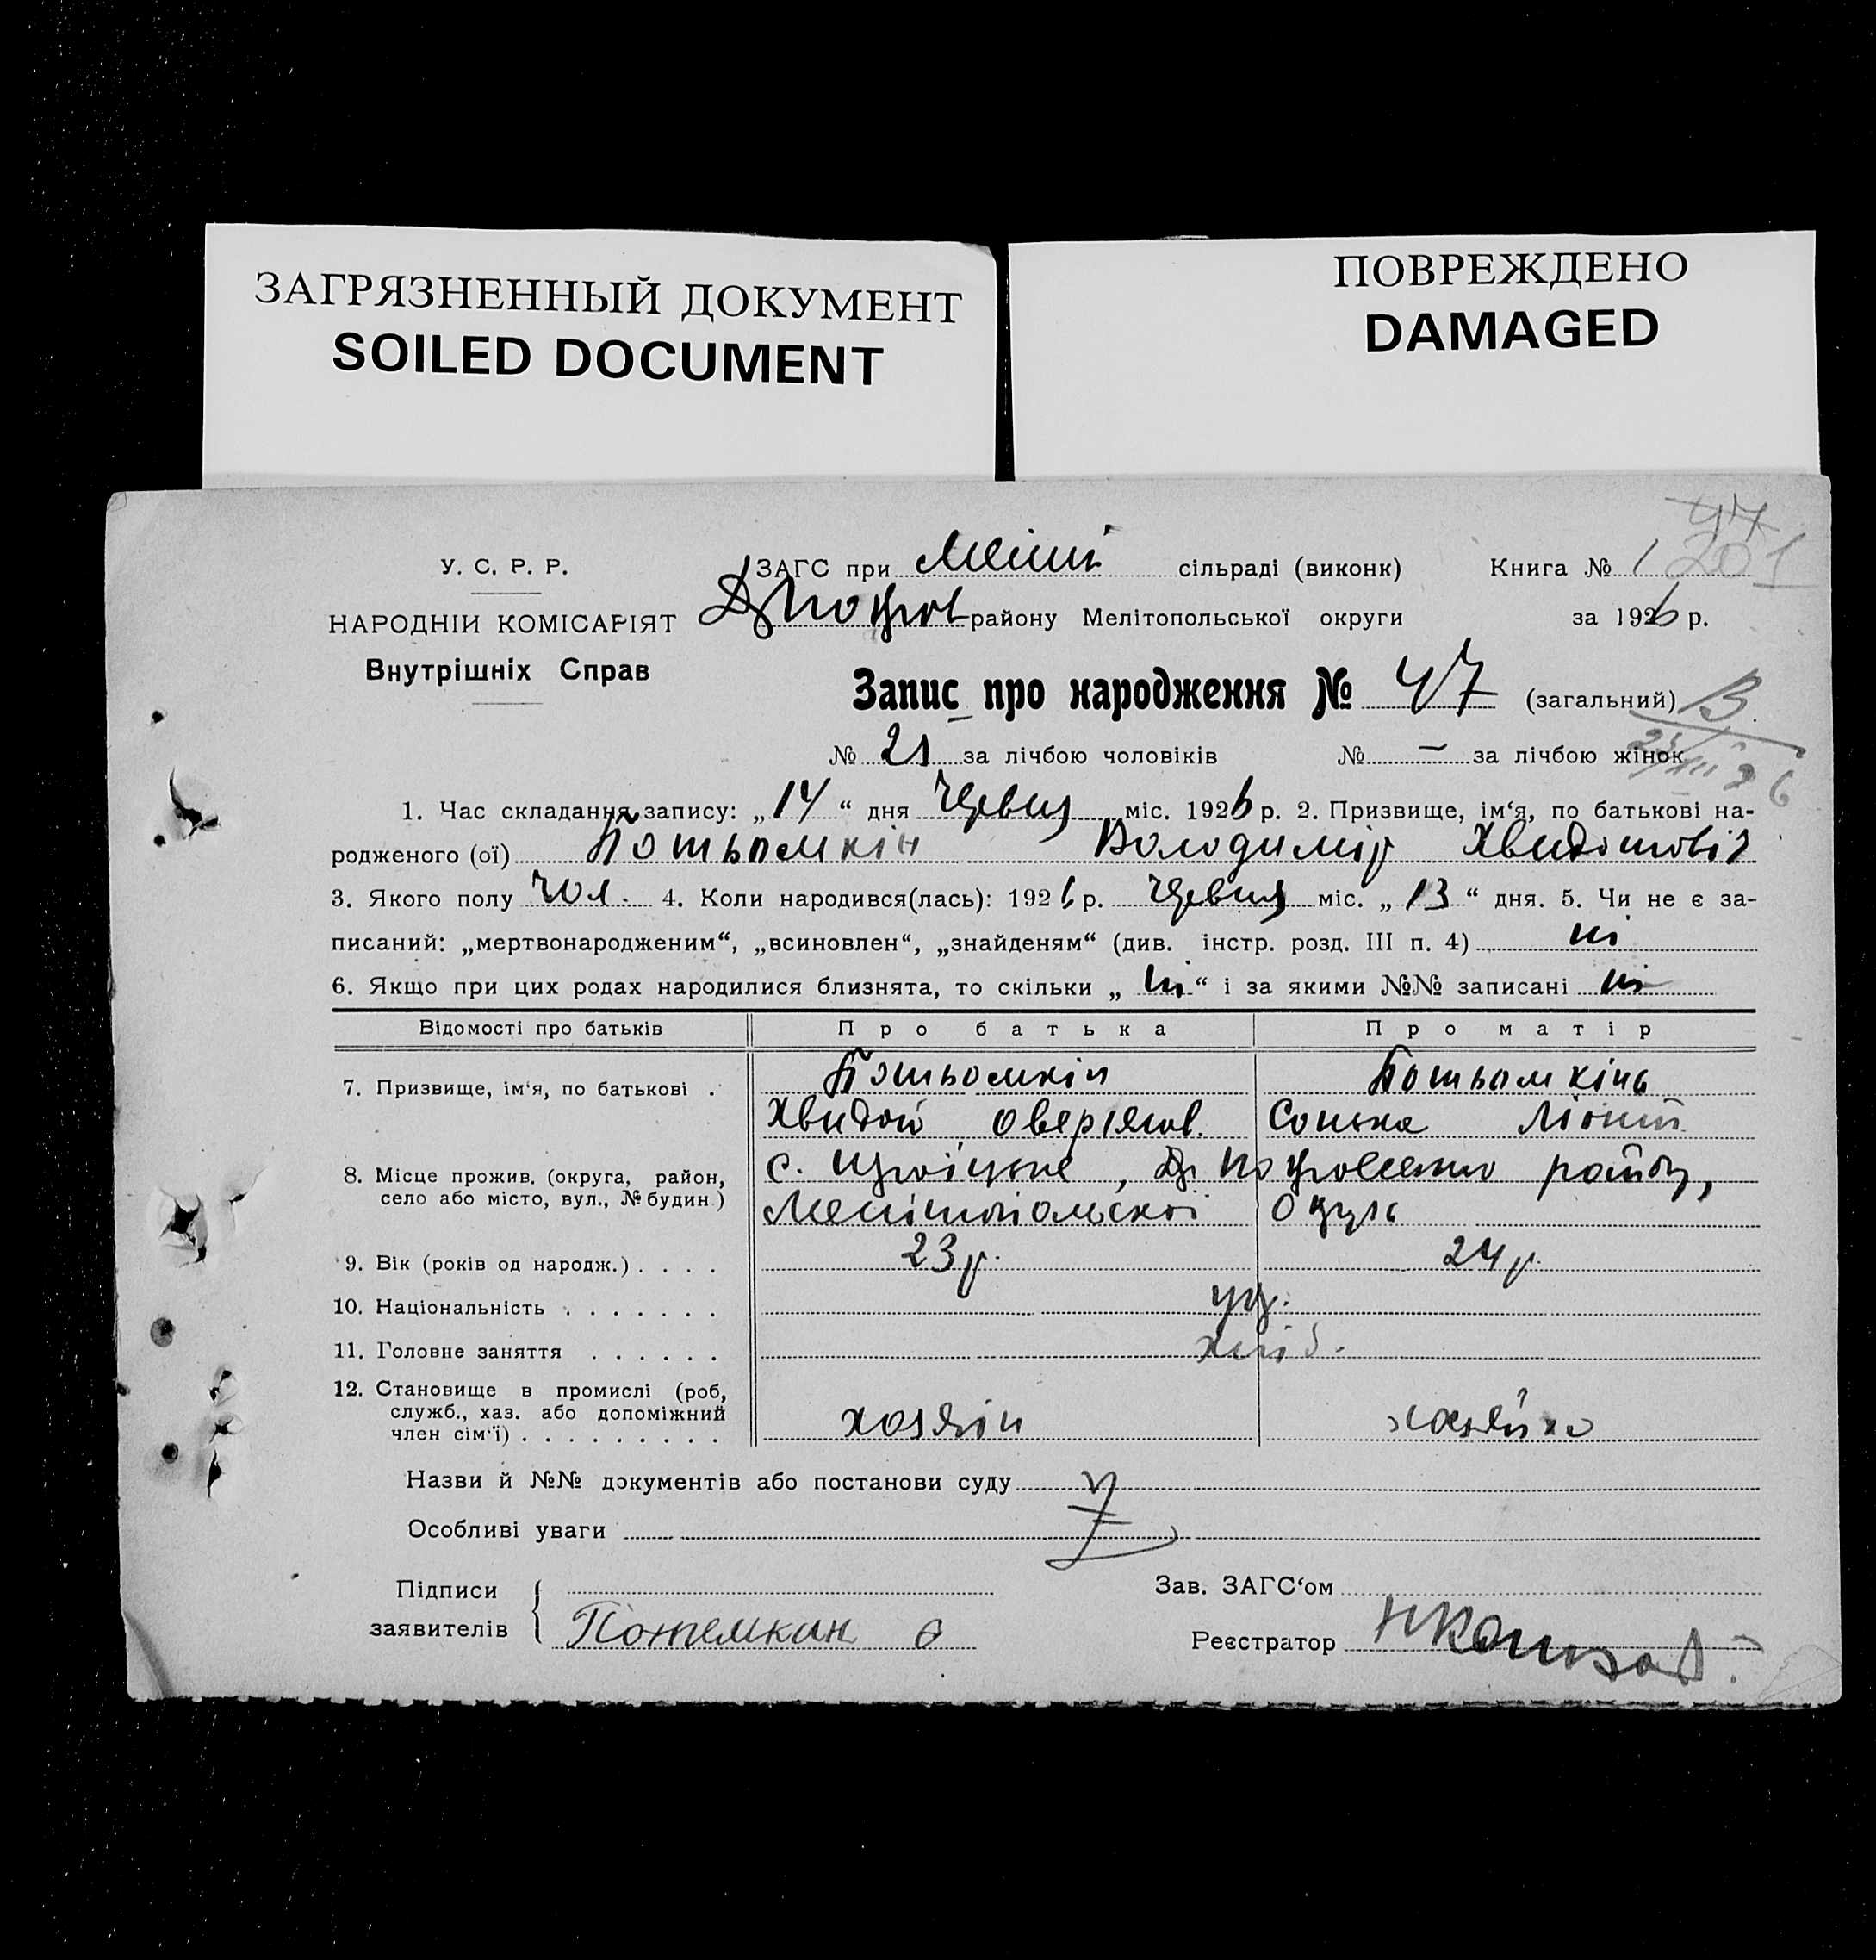 ЗАГРЯЗНЕННЫЙ ДОКУМЕНТ
SOILED DOCUMENT
ПОВРЕЖДЕНО
DAMAGED
47
У. С. Р. Р. ЗАГС при сільраді (виконк) Книга № 1 201
НАРОДНІЙ КОМІСАРІЯТ району Мелітопольської округи за 1926 р.
Внутрішніх Справ
Запис про народження № 47 (загальний)
№ 21 за лічбою чоловіків № — за лічбою жінок
1. Час складання запису: „14“ дня Червня міс. 1926 р. 2. Призвище, ім‘я, по батькові на-
родженого (ої) Потьомкін Володимір
3. Якого полу чол. 4. Коли народився(лась): 1926 р. Червня міс. „13“ дня. 5. Чи не є за-
писаний: „мертвонародженим“, „всиновлен“, „знайденям“ (див. інстр. розд. III п. 4) ні
6. Якщо при цих родах народилися близнята, то скільки „ні“ і за якими №№ записані ні
Відомості про батьків Про батька Про матір
7. Призвище, ім‘я, по батькові . Потьомкін Потьомкіна
Хвидой
8. Місце прожив. (округа, район, с.
село або місто, вул., № будин.) Мелітопольскої
9. Вік (років од народж.) . . . . 23 р. 24 р.
10. Національність . . . . . . . укр.
11. Головне заняття . . . . . . хліб.
12. Становище в промислі (роб,
служб., хаз. або допоміжний хозяін хазяйка
член сім‘ї) . . . . . . . . .
Назви й №№ документів або постанови суду
Особливі уваги
Підписи Зав. ЗАГС‘ом
заявителів Потемкин Реєстратор